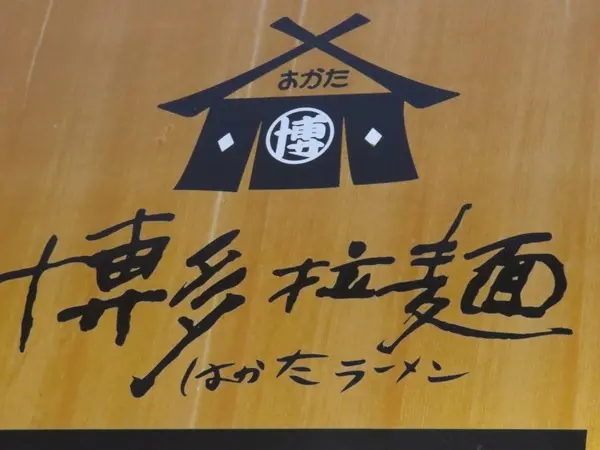 おかた
博
博多拉麺
はかたラーメン